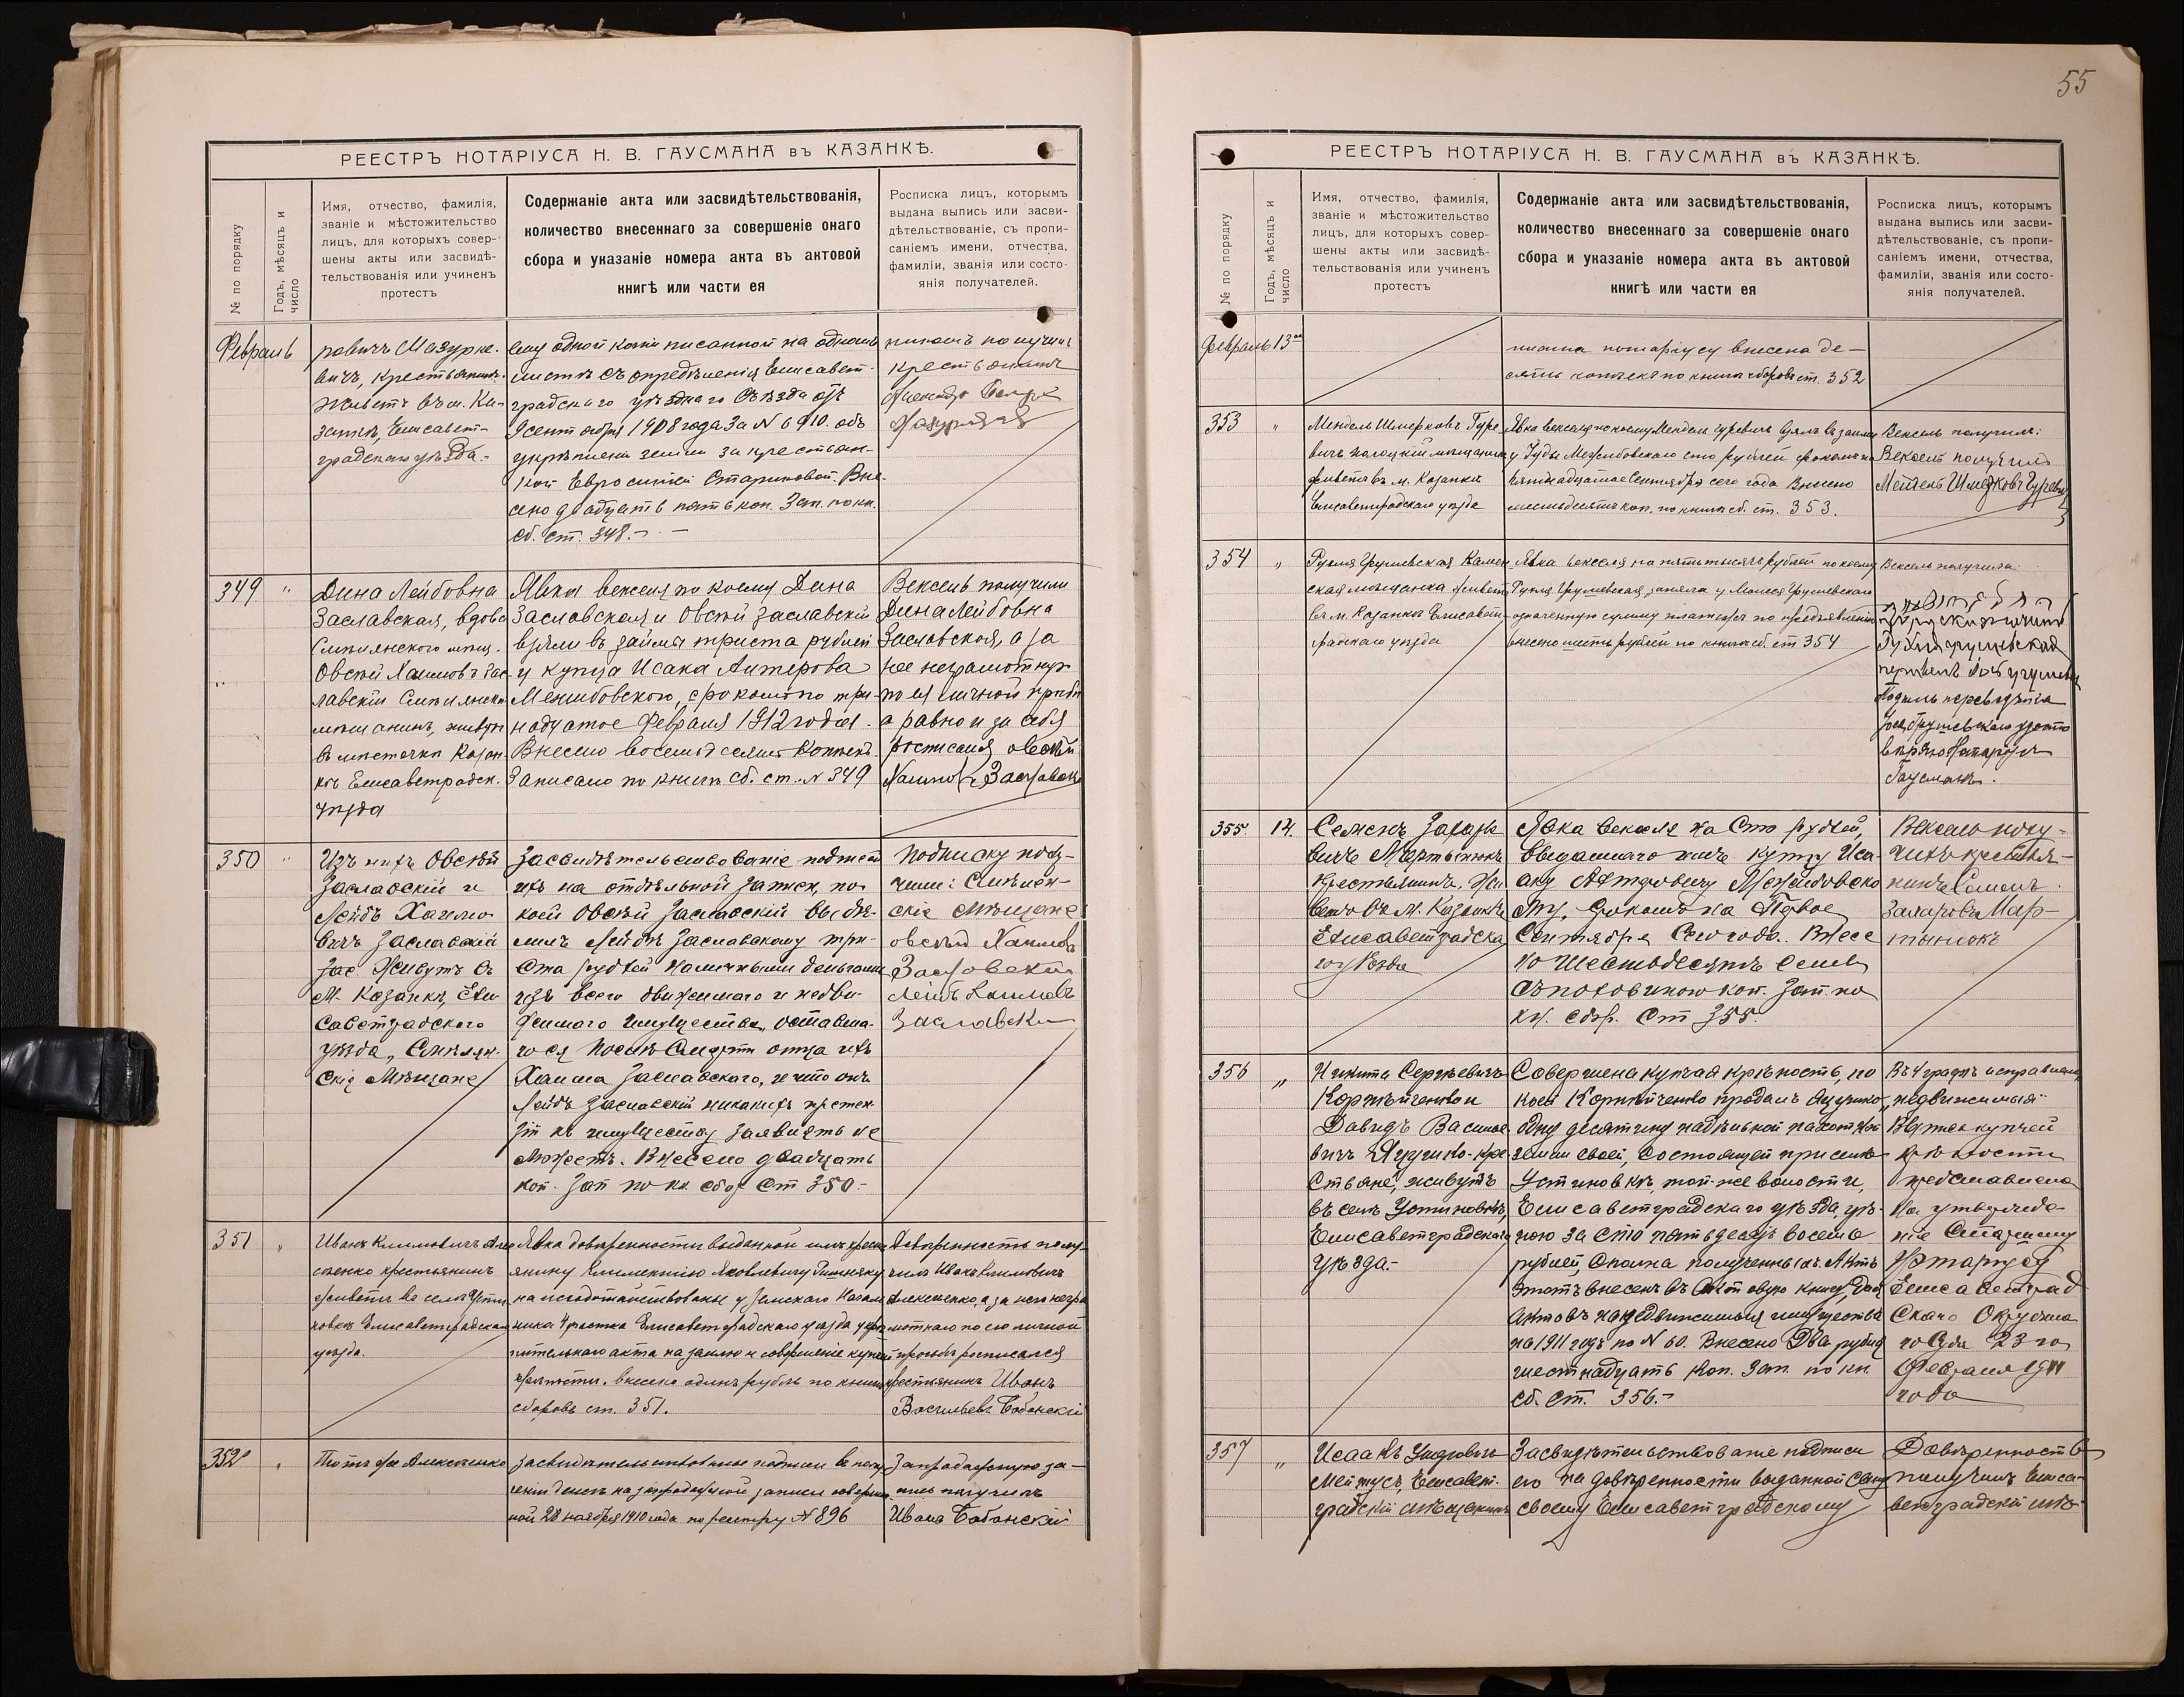 РЕЕСТРЪ НОТАРІУСА Н. В. ГАУСМАНА въ КАЗАНКѢ.
№ по порядку
Годъ, мѣсяцъ и
число
Имя, отчество, фамилія,
званіе и мѣстожительство
лицъ, для которыхъ совер-
шены акты или засвидѣ-
тельствованія или учиненъ
протестъ
Содержаніе акта или засвидѣтельствованія,
количество внесеннаго за совершеніе онаго
сбора и указаніе номера акта въ актовой
книгѣ или части ея
Росписка лицъ, которымъ
выдана выпись или засви-
дѣтельствованіе, съ пропи-
саніемъ имени, отчества,
фамиліи, званія или состо-
янія получателей.
Февраль
ровичъ Мазурке-
вичъ, крестьянинъ.
Живетъ въ м. Ка-
занкѣ, Елисавет-
градскаго уѣзда.-
ему одной копіи писанной на одномъ
листѣ съ опредѣленія Елисавет-
градскаго уѣзднаго Съѣзда отъ
9 сентября 1908 года за N 6910. объ
укрѣпленіи земли за крестьян-
кой Евросиніей Стариковой. Вне-
сено двадцать пять коп. Зап. по кн.
сб. ст. 348.-
получилъ
крестьянинъ
349
"
Дина Лейбовна
Заславская, вдова
Смѣлянского мѣщ.
Овсѣй Хаимовъ Зас-
лавскій Смѣлянскій
мѣщанинъ, живутъ
въ мѣстечкѣ Казан-
кѣ Елисаветградск.
уѣзда
Явка векселя по коему Дина
Заславская и Овсѣй Заславскій
взяли въ займы триста рублей
у купца Исака Антерова
Межибовского, срокомъ по три-
надцатое Февраля 1912 года.
Внесено восемьдесятъ копѣекъ
Записано по книгѣ сб. ст. N 349
Вексель получили
Дина Лейбовна
Заславская, а за
нее неграмотную
по ея личной просьбѣ
а равно и за себя
росписался Овсѣй
Хаимовъ Заславскій
350
"
Изъ нихъ Овсѣй
Заславскій и
Лейбъ Хаимо-
вичъ Заславскій
Живутъ въ
м. Казанкѣ, Ели-
саветградского
уѣзда, Смѣлян-
скіе Мѣщане
Засвидѣтельствованіе подписей
ихъ на отдѣльной запискѣ, по
коей Овсѣй Заславскій выдѣ-
лилъ Лейбѣ Заславскому три-
ста рублей наличными деньгами
изъ всего движимаго и недви-
жимаго имущества, оставша-
гося послѣ смерти отца ихъ
Хаима Заславскаго, и что онъ
Лейбъ Заславскій никакихъ претен-
зій къ имуществу заявлять не
можетъ. Внесено двадцать
коп. Зап по кн сбор ст 350.-
Подписку полу-
чили: Смѣлян-
скіе Мѣщане
Овсѣй Хаимовъ
Заславскій
Лейбъ Хаимовъ
Заславскій
351
"
Иванъ Климовичъ Алек-
сѣенко крестьянинъ
живетъ въ селѣ Усти-
новкѣ Елисаветградскаго
уѣзда.
Явка довѣренности выданной имъ кресть-
янину Климентію Яковлевичу
на исходатайствованіе у Земскаго Началь-
ника 4 участка Елисаветградскаго уѣзда укрѣ-
пительнаго акта на землю и совершеніе купчей
крѣпости. внесено одинъ рубль по книгѣ
сборовъ ст. 351.
Довѣренность полу-
чилъ Иванъ Климовичъ
Алексѣенко, а за него негра-
мотнаго по его личной
просьбѣ росписался
крестьянинъ Иванъ
Васильевъ Бабанскій
352
"
Алексѣенко
Засвидѣтельствованіе подписи въ полу-
ченіи денегъ на запродажной записи совершен-
ной 28 ноября 1910 года по реестру N 896
Запродажную за-
пись получилъ
Иванъ Бабанскій
55
РЕЕСТРЪ НОТАРІУСА Н. В. ГАУСМАНА въ КАЗАНКѢ.
№ по порядку
Годъ, мѣсяцъ и
число
Имя, отчество, фамилія,
званіе и мѣстожительство
лицъ, для которыхъ совер-
шены акты или засвидѣ-
тельствованія или учиненъ
протестъ
Содержаніе акта или засвидѣтельствованія,
количество внесеннаго за совершеніе онаго
сбора и указаніе номера акта въ актовой
книгѣ или части ея
Росписка лицъ, которымъ
выдана выпись или засви-
дѣтельствованіе, съ пропи-
саніемъ имени, отчества,
фамиліи, званія или состо-
янія получателей.
Февраль 13
нотаріусу внесена де-
сять копѣекъ по книгѣ сборовъ ст. 352
353
"
Мендель Шмерковъ Гуре-
вичъ полоцкій мѣщанинъ
живетъ въ м. Казанкѣ
Елисаветградскаго уѣзда
Явка векселя по коему Мендель Гуревичъ взялъ въ займы
у Іуды Межибовскаго сто рублей срокомъ на
пятнадцатое Сентября сего года Внесено
шестьдесятъ коп. по книгѣ сб. ст. 353.
Вексель получилъ:
Вексель получилъ
Мендель Шмерковъ Гуревичъ
354
"
Рухля Грушевская Камен-
ская мѣщанка живетъ
въ м. Казанкѣ Елисавет-
градскаго уѣзда
Явка векселя на пять тысячъ рублей по коему
Рухля Грушевская заняла у Моисея Грушевскаго
означенную сумму платежъ по предъявленіи
внесено шесть рублей по книгѣ сб. ст 354
Вексель получила:
Нотаріусъ
Гаусманъ.
355
14.
Семенъ Захаро-
вичъ Мартынюкъ
Крестьянинъ, Жи-
ветъ въ м. Казанкѣ
Елисаветградска-
го уѣзда
Явка векселя на Сто рублей,
выданнаго имъ купцу Иса-
аку Антеровичу Межибовско-
му, срокомъ на Первое
Сентября Сего года. Внесе-
но шестьдесятъ семь
съ половиною коп. Зап. по
кн. сбор. ст 355.
Вексель полу-
чилъ крестьян-
инъ Семенъ
Захаровъ Мар-
тынюкъ
356
"
Никита Сергѣевичъ
Корнѣйченко и
Давидъ Василье-
вичъ Яцушко-кре-
стьяне, живутъ
въ селѣ Устиновкѣ,
Елисаветградскаго
уѣзда.-
Совершена купчая крѣпость, по
коей Корнѣйченко продалъ Яцушко
одну десятину надѣльной пахотной
земли своей, состоящей при селѣ
Устиновкѣ, той-же волости,
Елисаветградскаго уѣзда, цѣ-
ною за сто пятьдесятъ восемь
рублей, сполна полученныхъ. Актъ
этотъ внесенъ въ Актовую книгу, для
актовъ на недвижимыя имущества
на 1911 годъ по N 60. Внесено Два рубля
шестнадцать коп. Зап. по кн.
сб. ст. 356.-
Въ 4 графѣ исправлено
„недвижимыя"
Выпись купчей
крѣпости
представлена
на утвержде-
ніе Старшему
Нотаріусу
Елисаветград-
скаго Окружна-
го Суда 23 го
Февраля 1911
года
357
"
Исаакъ
Мейтусъ, Елисавет-
градскій мѣщанинъ
Засвидѣтельствованіе подписи
его на довѣренности выданной сыну
своему Елисаветградскому
Довѣренность
получилъ Елиса-
ветградскій мѣ-